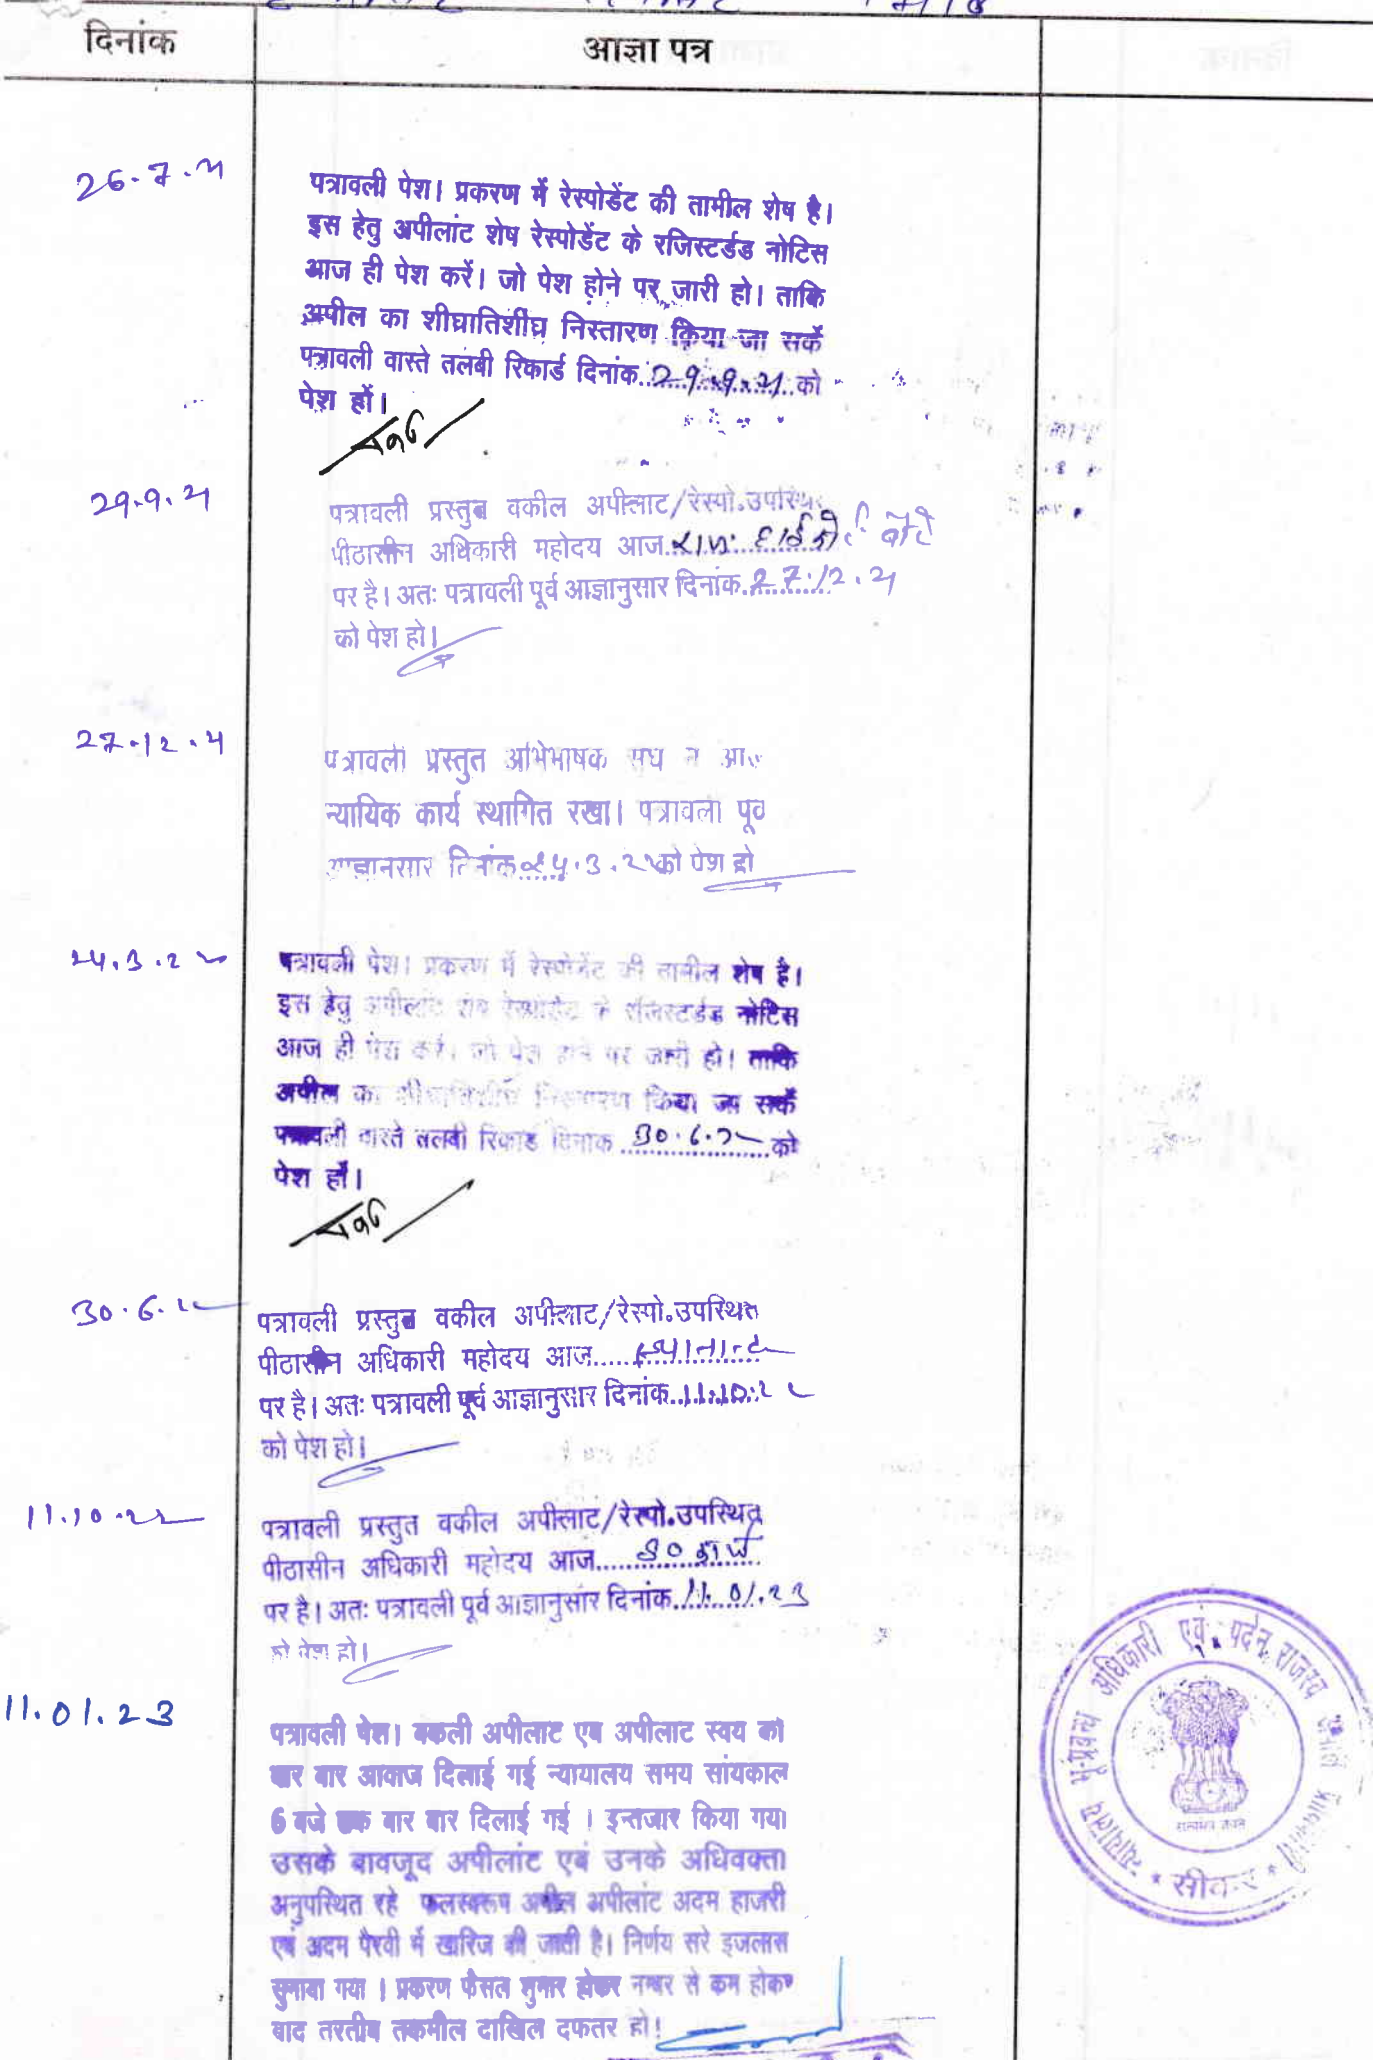 दिनांक
आज्ञा पत्र
26.7.21
पत्रावली पेश। प्रकरण में रेस्पोडेंट की तामील शेष है।
इस हेतु अपीलांट शेष रेस्पोडेंट के रजिस्टर्डड नोटिस
आज ही पेश करें। जो पेश होने पर जारी हो। ताकि
अपील का शीघ्रातिशीघ्र निस्तारण किया जा सकें
पत्रावली वास्ते तलबी रिकार्ड दिनांक 29.9.21 को
पेश हों।
29.9.21
पत्रावली प्रस्तुत वकील अपीलाट/रेस्पो.उपस्थित
पीठासीन अधिकारी महोदय आज
पर है। अतः पत्रावली पूर्व आज्ञानुसार दिनांक 27.12.21
को पेश हो।
27.12.21
पत्रावली प्रस्तुत अभिभाषक संघ ने आज
न्यायिक कार्य स्थागित रखा। पत्रावली पूर्व
आज्ञानुसार दिनांक 24.3.22 को पेश हो
24.3.22
पत्रावली पेश। प्रकरण में रेस्पोडेंट की तामील शेष है।
इस हेतु अपीलांट शेष रेस्पोडेंट के रजिस्टर्डड नोटिस
आज ही पेश करें। जो पेश होने पर जारी हो। ताकि
अपील का शीघ्रातिशीघ्र निस्तारण किया जा सकें
पत्रावली वास्ते तलबी रिकार्ड दिनांक 30.6.22 को
पेश हों।
30.6.22
पत्रावली प्रस्तुत वकील अपीलाट/रेस्पो.उपस्थित
पीठासीन अधिकारी महोदय आज
पर है। अतः पत्रावली पूर्व आज्ञानुसार दिनांक 11.10.22
को पेश हो।
11.10.22
पत्रावली प्रस्तुत वकील अपीलाट/रेस्पो.उपस्थित
पीठासीन अधिकारी महोदय आज
पर है। अतः पत्रावली पूर्व आज्ञानुसार दिनांक 11.01.23
को पेश हो।
11.01.23
पत्रावली पेश। वकली अपीलाट एव अपीलाट स्वय को
बार बार आवाज दिलाई गई न्यायालय समय सांयकाल
6 बजे तक बार बार दिलाई गई । इन्तजार किया गया
उसके बावजूद अपीलांट एवं उनके अधिवक्ता
अनुपस्थित रहे फलस्वरूप अपील अपीलांट अदम हाजरी
एवं अदम पैरवी में खारिज की जाती है। निर्णय सरे इजलास
सुनाया गया । प्रकरण फैसल शुमार होकर नम्बर से कम होकर
बाद तरतीब तकमील दाखिल दफतर हो।
न्यायालय भू-प्रबन्ध अधिकारी एवं पदेन राजस्व
सत्यमेव जयते
* सीकर *